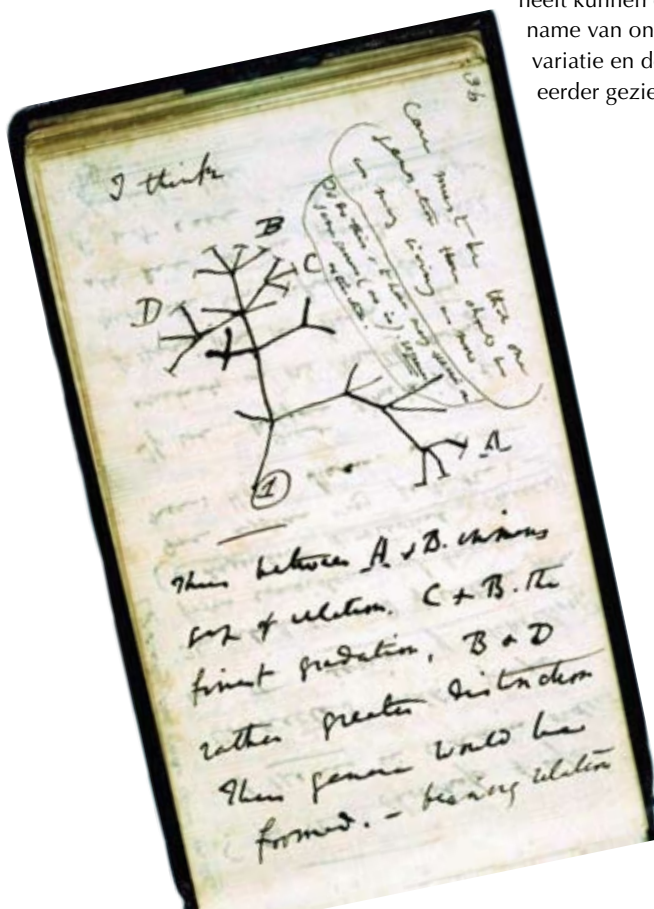 heeft kunnen
name van on
variatie en d
eerder gezie
36
I think
Case must be that one
generation then should be
as many living as now
To do this & to have many species in
same genus (as is) requires
extinction.
B
C
D
A
1
Thus between A & B. immense
gap of relation. C & B. the
finest gradation, B & D
rather greater distinction
Thus genera would be
formed. – bearing relation